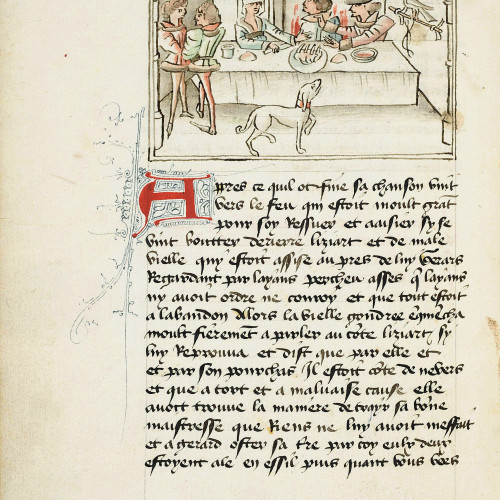 Apres ce quil ot fine sa chanson vint
vers le feu qui estoit moult grat
pour soy ressuer et aaisier sy se
vint boutter derriere liziart et de male
vielle quy estoit assise au pres de luy Gerars
Regardant par layans percheu asses q̃ layans
ny auoit ordre ne conroy et que tout estoit
a labandon Alors la vielle gondree
moult fieremẽt a parler au cõte liziart sy
luy Reprouua et dist que par elle et
et par son pourchas Il estoit cõte de nevers
et que a tort et a maluaise cause elle
auoit trouue la maniere de trayr sa bõne
maistresse que Riens ne luy auoit meffait
et a gerard oster sa tre par quoy eulx deux
estoyent ale en essil puis quant vous vees